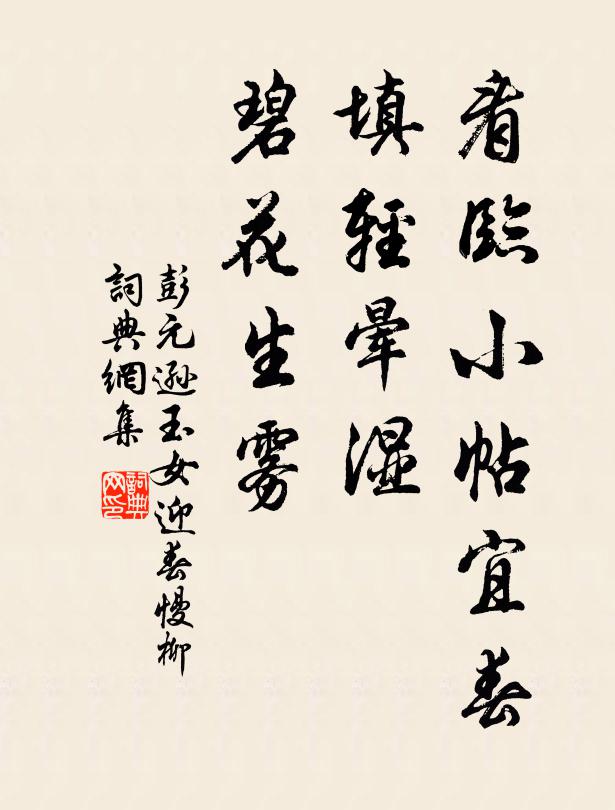 看臨小帖宜春
填輕暈濕
碧花生霧
彭元遜玉女迎春慢柳
詞典網集
詞典网印